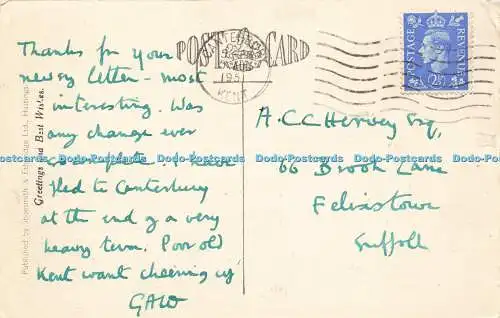 POST CARD
CANTERBURY
195
KENT
POSTAGE
REVENUE
2½D
Thanks for your
newsy letter - most
interesting. Was
any change ever
I have
fled to Canterbury
at the end of a very
heavy term. Poor old
Kent want cheering up
GAW
A.C.C Hervey Esq,
66 Brook Lane
Felixstowe
Suffolk
Greetings and Best Wishes.
Published by & Ltd., Hastings
Dodo-Postcards Dodo-Postcards Dodo-Postcards Dodo-Postcards Dodo-Postcards Dodo-Postcards